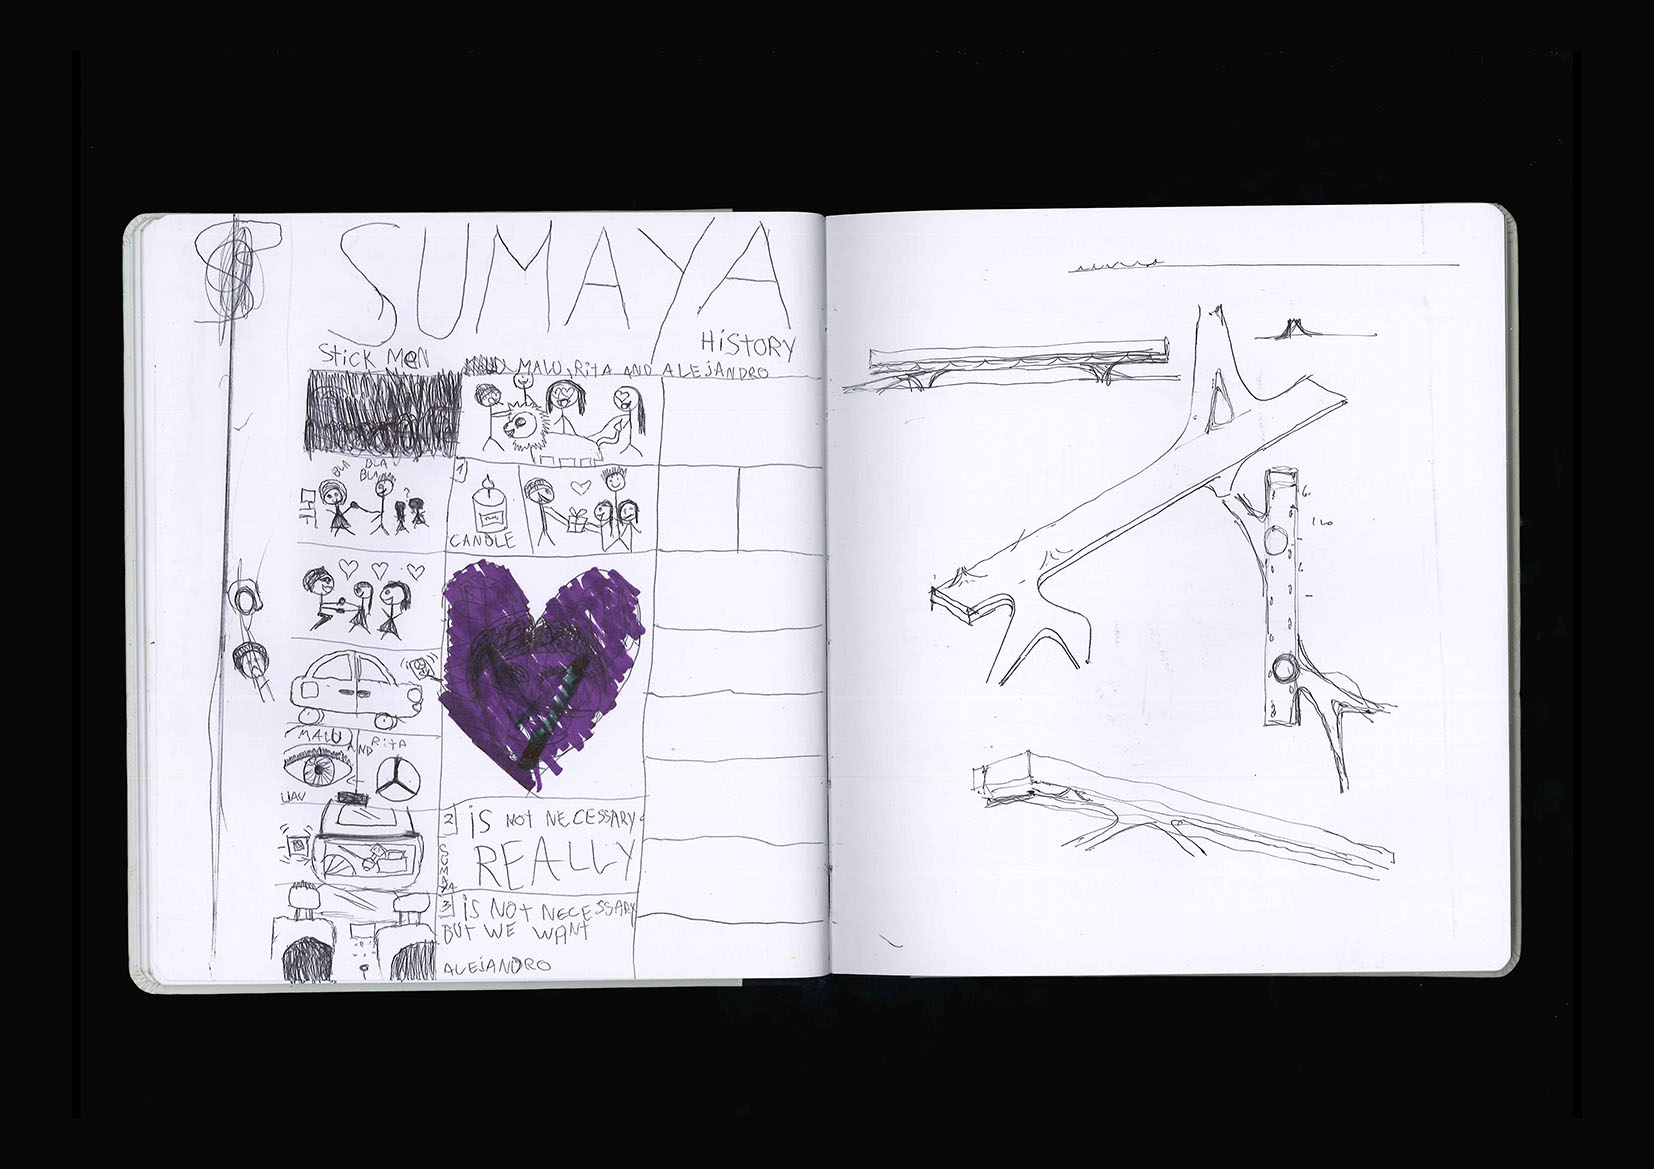 SUMAYA
HiSTORY
StiCK MeN
MALU, RitA AND ALEjANDRO
BLA BLA
BLA
?
1
CANDLE
MALU
AND RitA
UAU
2 iS NOT NECESSARY
REALLY
SUMAYA
3 iS NOT NECESSARY
BUT WE WANT
ALEJANDRO